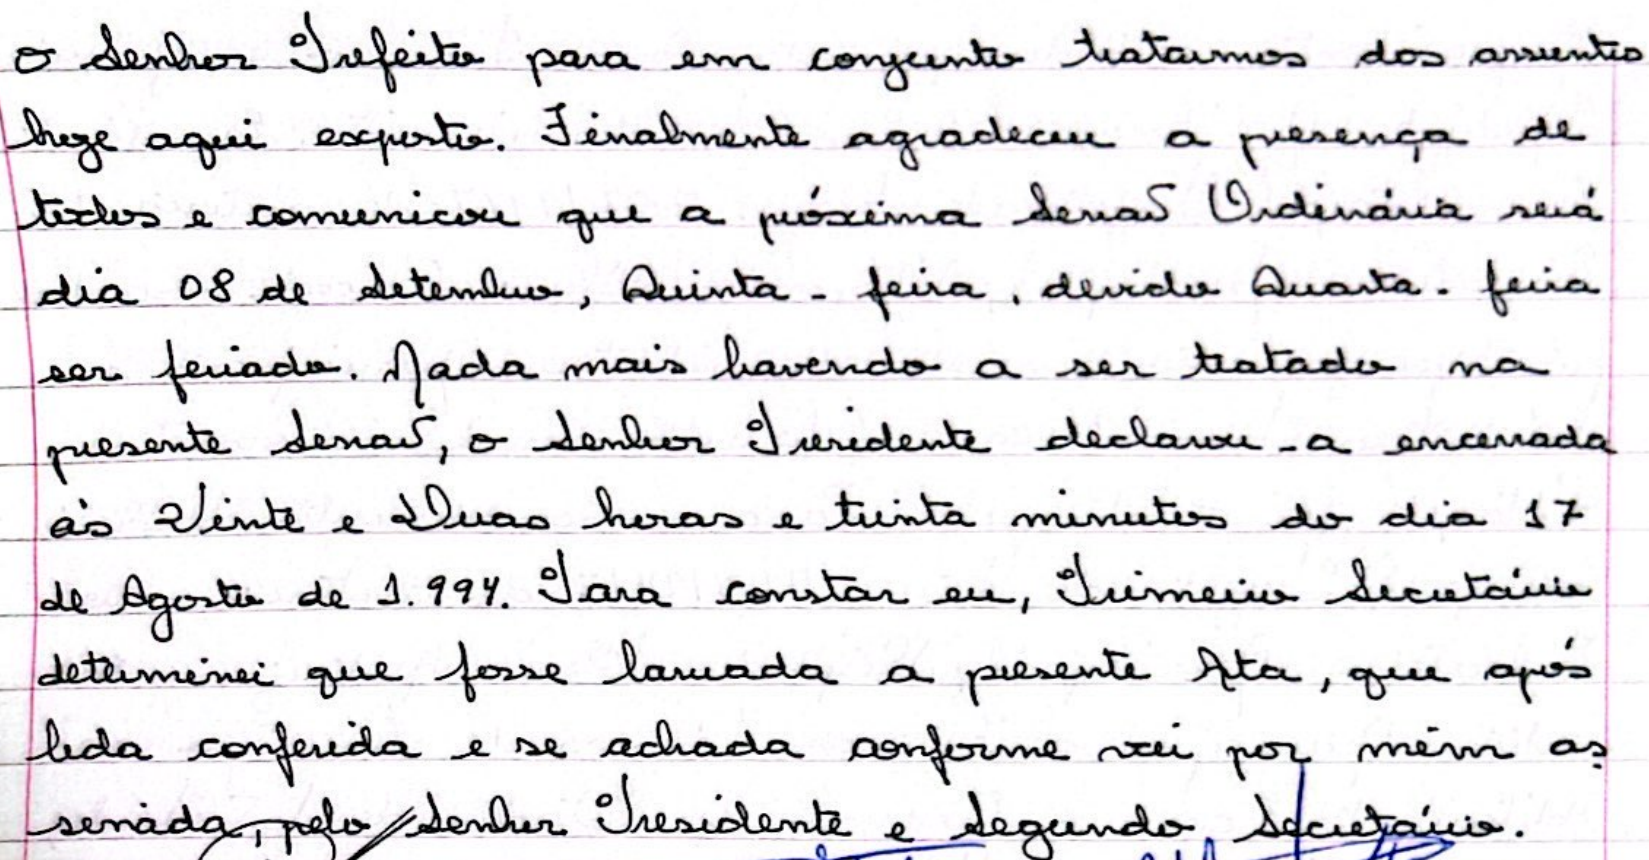 o Senhor Prefeito para em conjunto tratarmos dos assuntos
hoje aqui exposto. Finalmente agradeceu a presença de
todos e comunicou que a próxima Sessão Ordinária será
dia 08 de Setembro, Quinta-feira, devido Quarta-feira
ser feriado. Nada mais havendo a ser tratado na
presente Sessão, o Senhor Presidente declarou-a encerrada
às Vinte e Duas horas e trinta minutos do dia 17
de Agosto de 1.994. Para constar eu, Primeiro Secretário
determinei que fosse lavrada a presente Ata, que após
lida conferida e se achada conforme vai por mim as
sinada, pelo Senhor Presidente e Segundo Secretário.